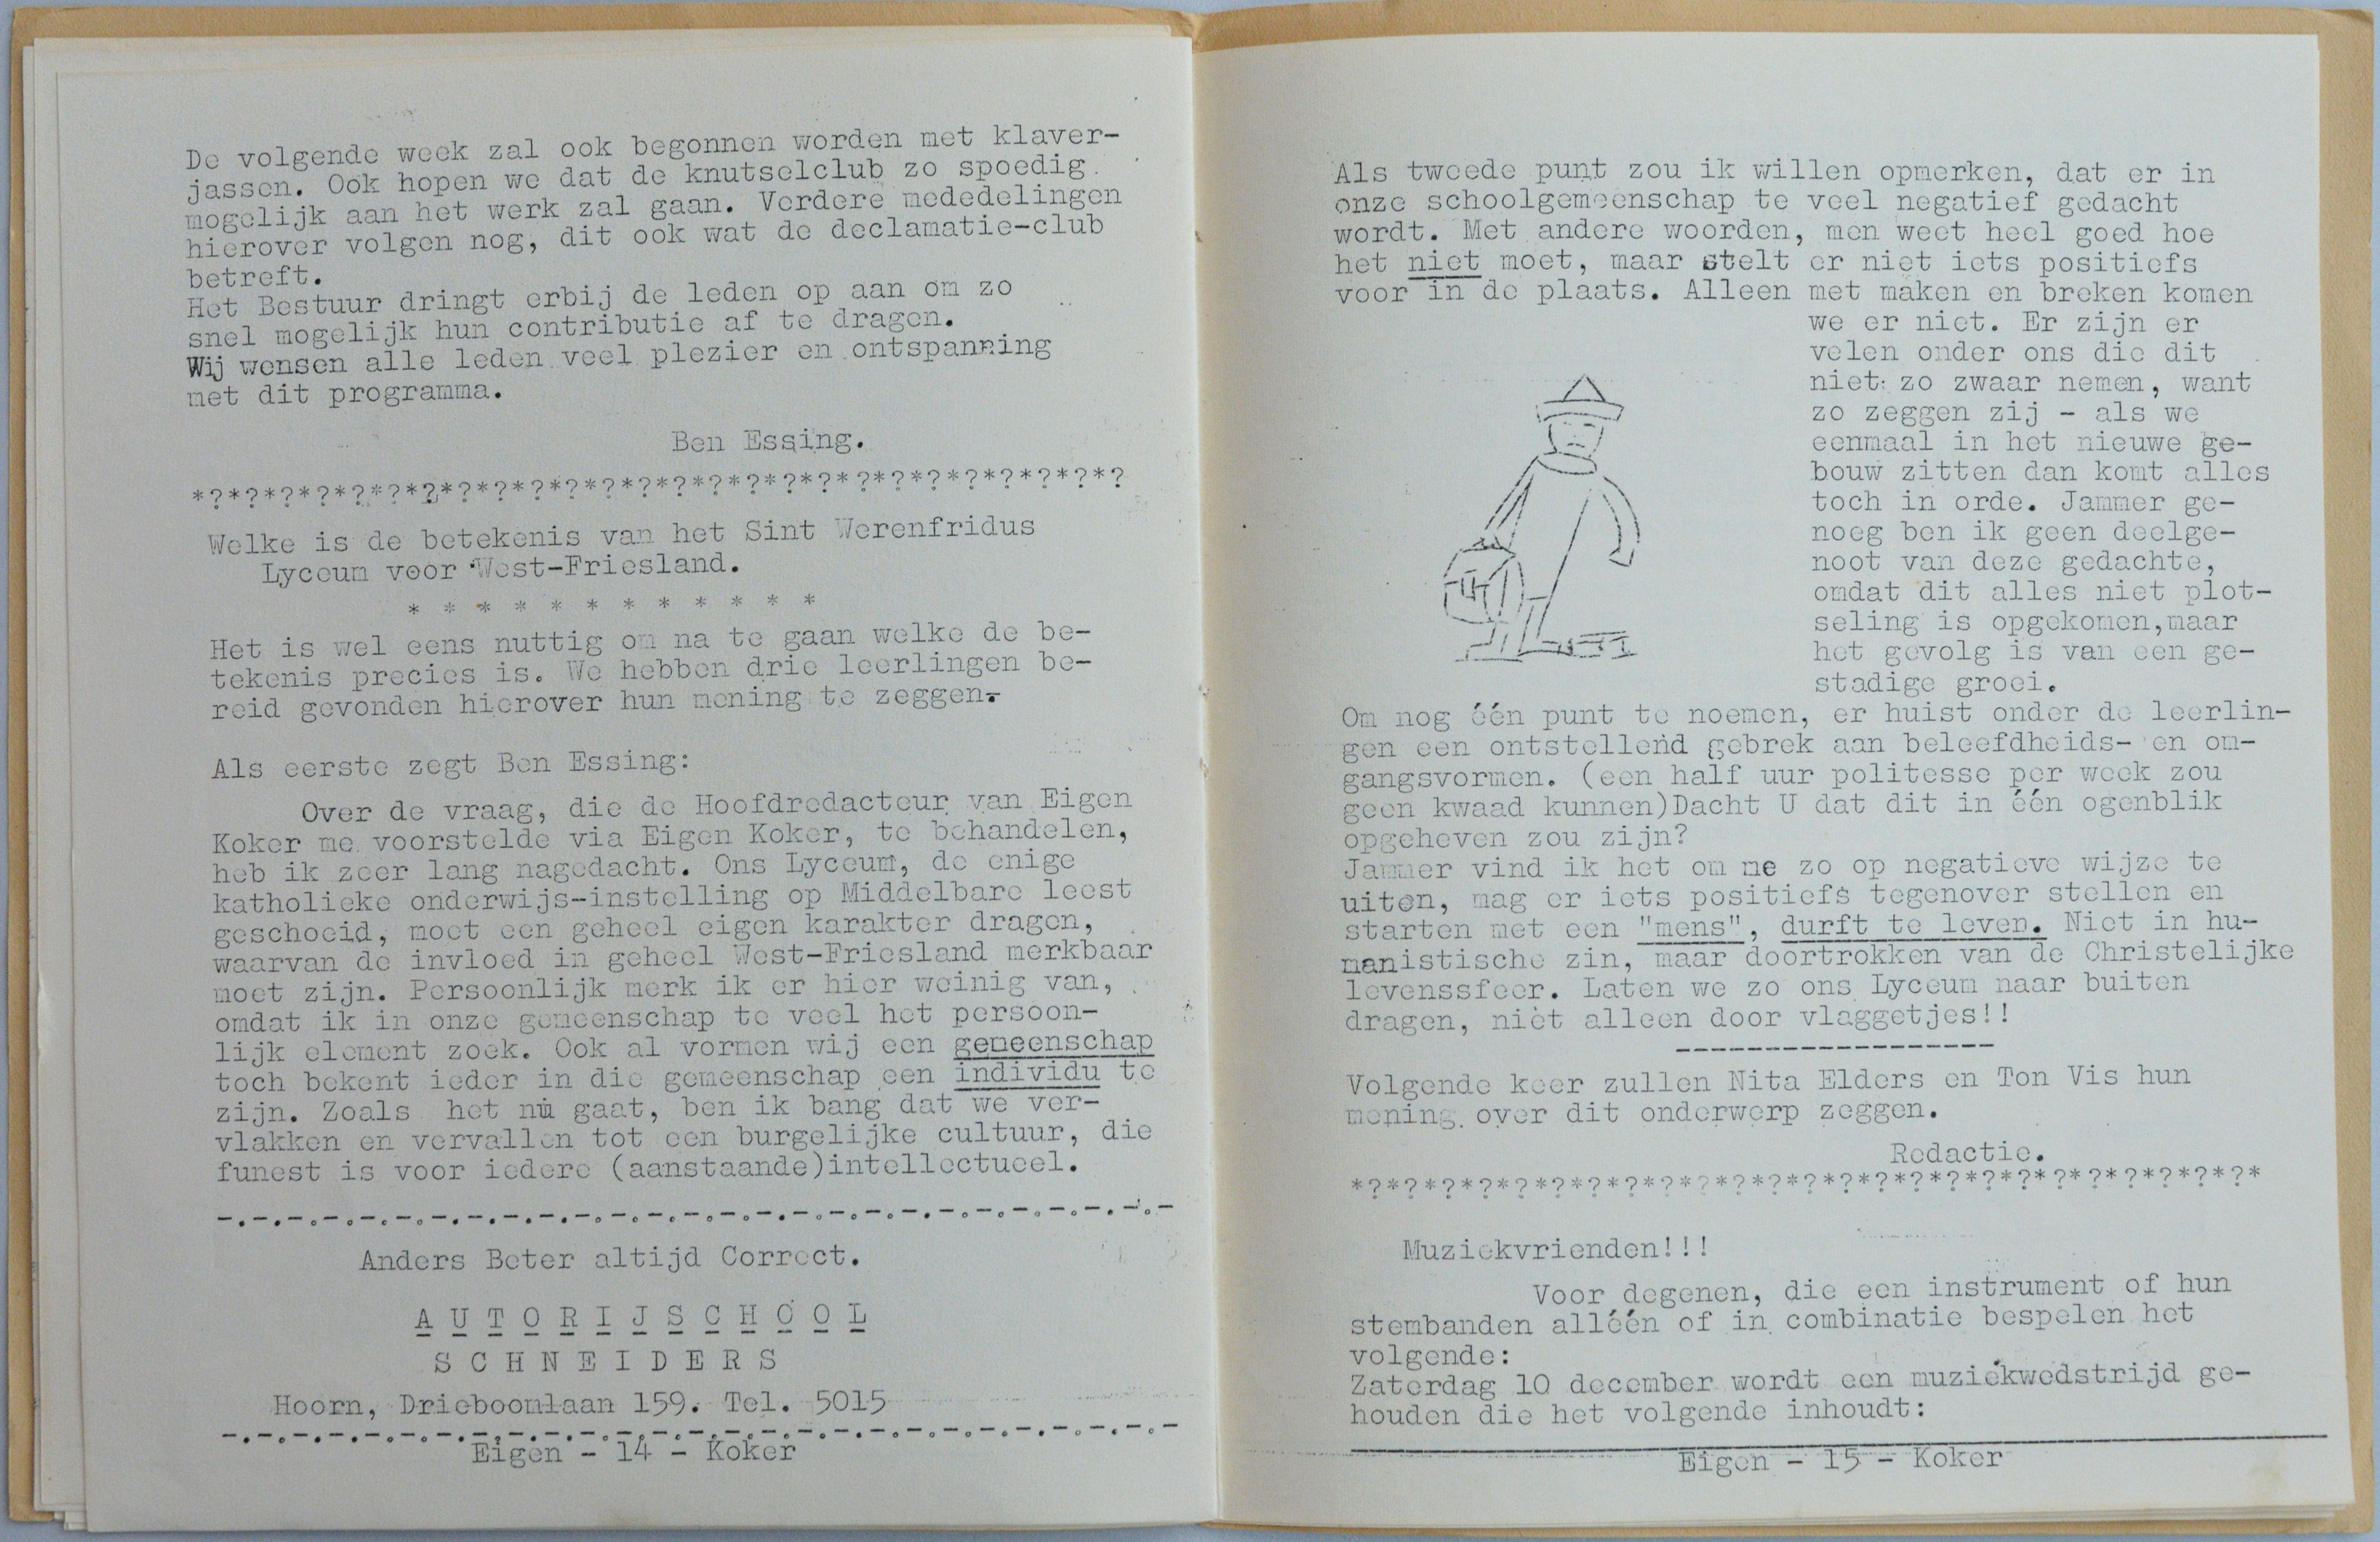 De volgende week zal ook begonnen worden met klaver-
jassen. Ook hopen we dat de knutselclub zo spoedig
mogelijk aan het werk zal gaan. Verdere mededelingen
hierover volgen nog, dit ook wat de declamatie-club
betreft.
Het Bestuur dringt erbij de leden op aan om zo
snel mogelijk hun contributie af te dragen.
Wij wensen alle leden veel plezier en ontspanning
met dit programma.
Ben Essing.
*?*?*?*?*?*?*?*?*?*?*?*?*?*?*?*?*?*?*?*?*?*?*?*?*?*?
Welke is de betekenis van het Sint Werenfridus
Lyceum voor West-Friesland.
* * * * * * * * * * * *
Het is wel eens nuttig om na te gaan welke de be-
tekenis precies is. We hebben drie leerlingen be-
reid gevonden hierover hun mening te zeggen.
Als eerste zegt Ben Essing:
Over de vraag, die de Hoofdredacteur van Eigen
Koker me voorstelde via Eigen Koker, te behandelen,
heb ik zeer lang nagedacht. Ons Lyceum, de enige
katholieke onderwijs-instelling op Middelbare leest
geschoeid, moet een geheel eigen karakter dragen,
waarvan de invloed in geheel West-Friesland merkbaar
moet zijn. Persoonlijk merk ik er hier weinig van,
omdat ik in onze gemeenschap te veel het persoon-
lijk element zoek. Ook al vormen wij een gemeenschap
toch bekent ieder in die gemeenschap een individu te
zijn. Zoals het nù gaat, ben ik bang dat we ver-
vlakken en vervallen tot een burgelijke cultuur, die
funest is voor iedere (aanstaande)intellectueel.
-.-.-.-.-.-.-.-.-.-.-.-.-.-.-.-.-.-.-.-.-.-.-.-.-.-.-
Anders Beter altijd Correct.
A U T O R I J S C H O O L
S C H N E I D E R S
Hoorn, Drieboomlaan 159. Tel. 5015
-.-.-.-.-.-.-.-.-.-.-.-.-.-.-.-.-.-.-.-.-.-.-.-.-.-.-
Eigen - 14 - Koker
Als tweede punt zou ik willen opmerken, dat er in
onze schoolgemeenschap te veel negatief gedacht
wordt. Met andere woorden, men weet heel goed hoe
het niet moet, maar stelt er niet iets positiefs
voor in de plaats. Alleen met maken en breken komen
we er niet. Er zijn er
velen onder ons die dit
niet zo zwaar nemen, want
zo zeggen zij - als we
eenmaal in het nieuwe ge-
bouw zitten dan komt alles
toch in orde. Jammer ge-
noeg ben ik geen deelge-
noot van deze gedachte,
omdat dit alles niet plot-
seling is opgekomen,maar
het gevolg is van een ge-
stadige groei.
Om nog één punt te noemen, er huist onder de leerlin-
gen een ontstellend gebrek aan beleefdheids- en om-
gangsvormen. (een half uur politesse per week zou
geen kwaad kunnen)Dacht U dat dit in één ogenblik
opgeheven zou zijn?
Jammer vind ik het om me zo op negatieve wijze te
uiten, mag er iets positiefs tegenover stellen en
starten met een "mens", durft te leven. Niet in hu-
manistische zin, maar doortrokken van de Christelijke
levenssfeer. Laten we zo ons Lyceum naar buiten
dragen, nièt alleen door vlaggetjes!!
------------------
Volgende keer zullen Nita Elders en Ton Vis hun
mening over dit onderwerp zeggen.
Redactie.
*?*?*?*?*?*?*?*?*?*?*?*?*?*?*?*?*?*?*?*?*?*?*?*?*?*
Muziekvrienden!!!
Voor degenen, die een instrument of hun
stembanden alléén of in combinatie bespelen het
volgende:
Zaterdag 10 december wordt een muziekwedstrijd ge-
houden die het volgende inhoudt:
Eigen - 15 - Koker